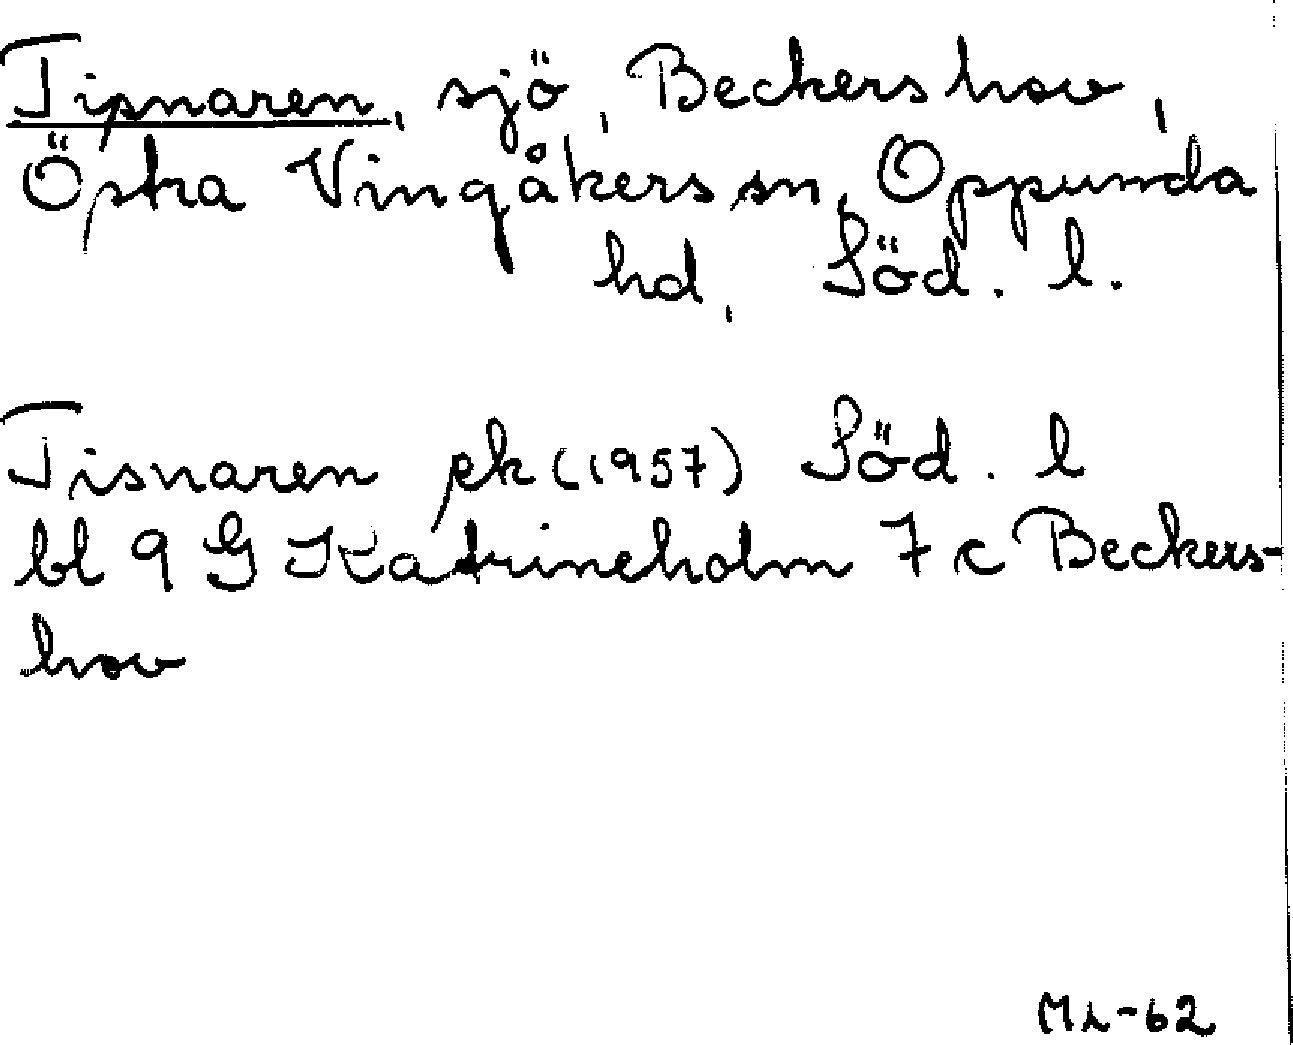 Tisnaren, sjö, Beckershov,
Östra Vingåkers sn, Oppunda
hd, Söd. l.
Tisnaren ek (1957) Söd. l
bl 9 G Katrineholm 7 c Beckers-
hov